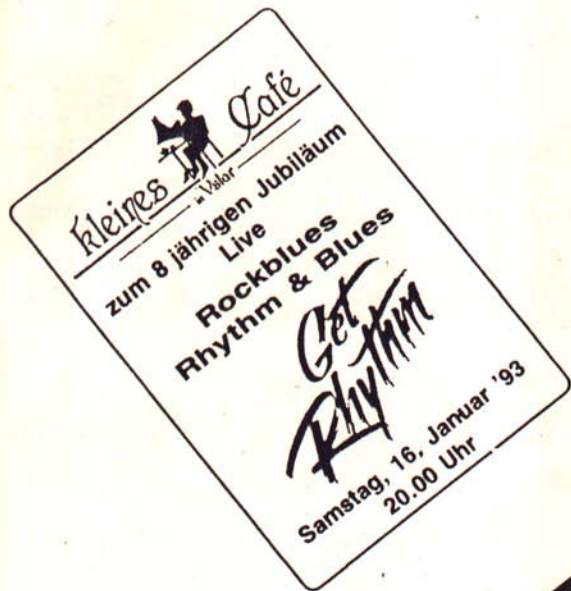 kleines Café
in Vslar
zum 8 jährigen Jubiläum
Live
Rockblues
Rhythm & Blues
Get
Rhythm
Samstag, 16, Januar '93
20.00 Uhr